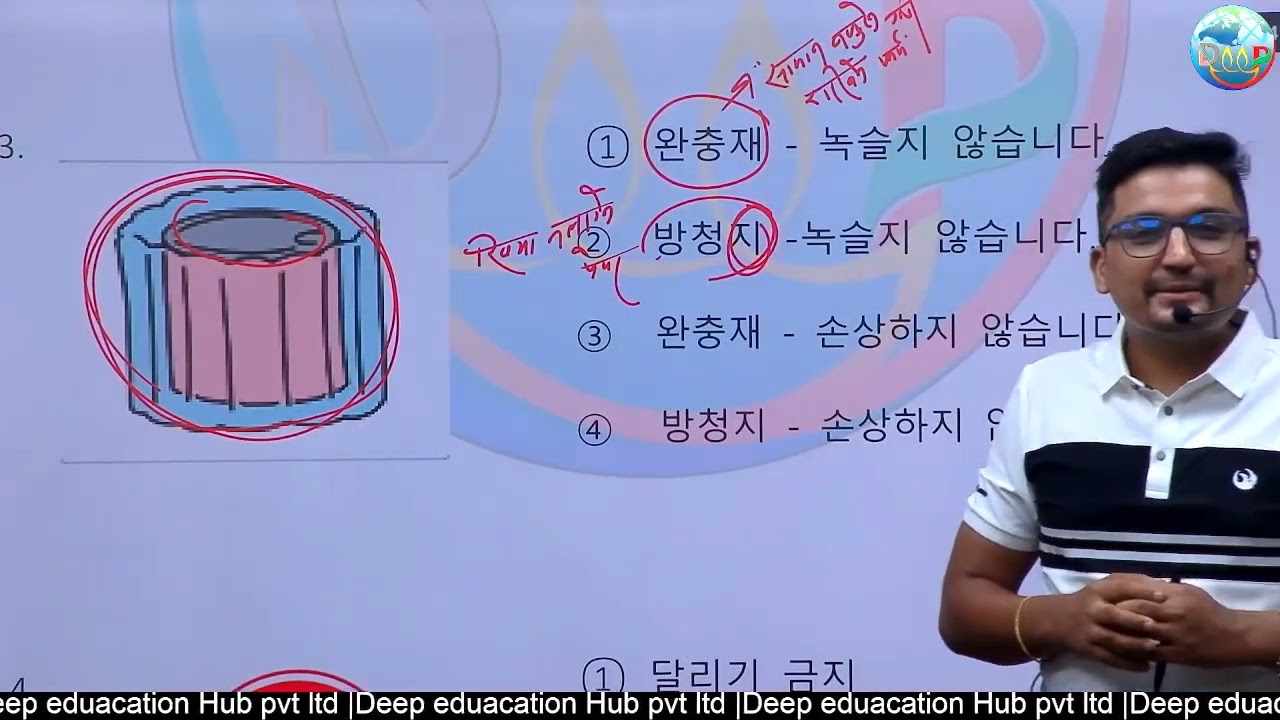 DEEP
3.
① 완충재 - 녹슬지 않습니다.
② 방청지 -녹슬지 않습니다.
③ 완충재 - 손상하지 않습니다
④ 방청지 - 손상하지
4
① 달리기 금지
eep eduacation Hub pvt ltd |Deep eduacation Hub pvt ltd |Deep eduacation Hub pvt ltd |Deep eduac